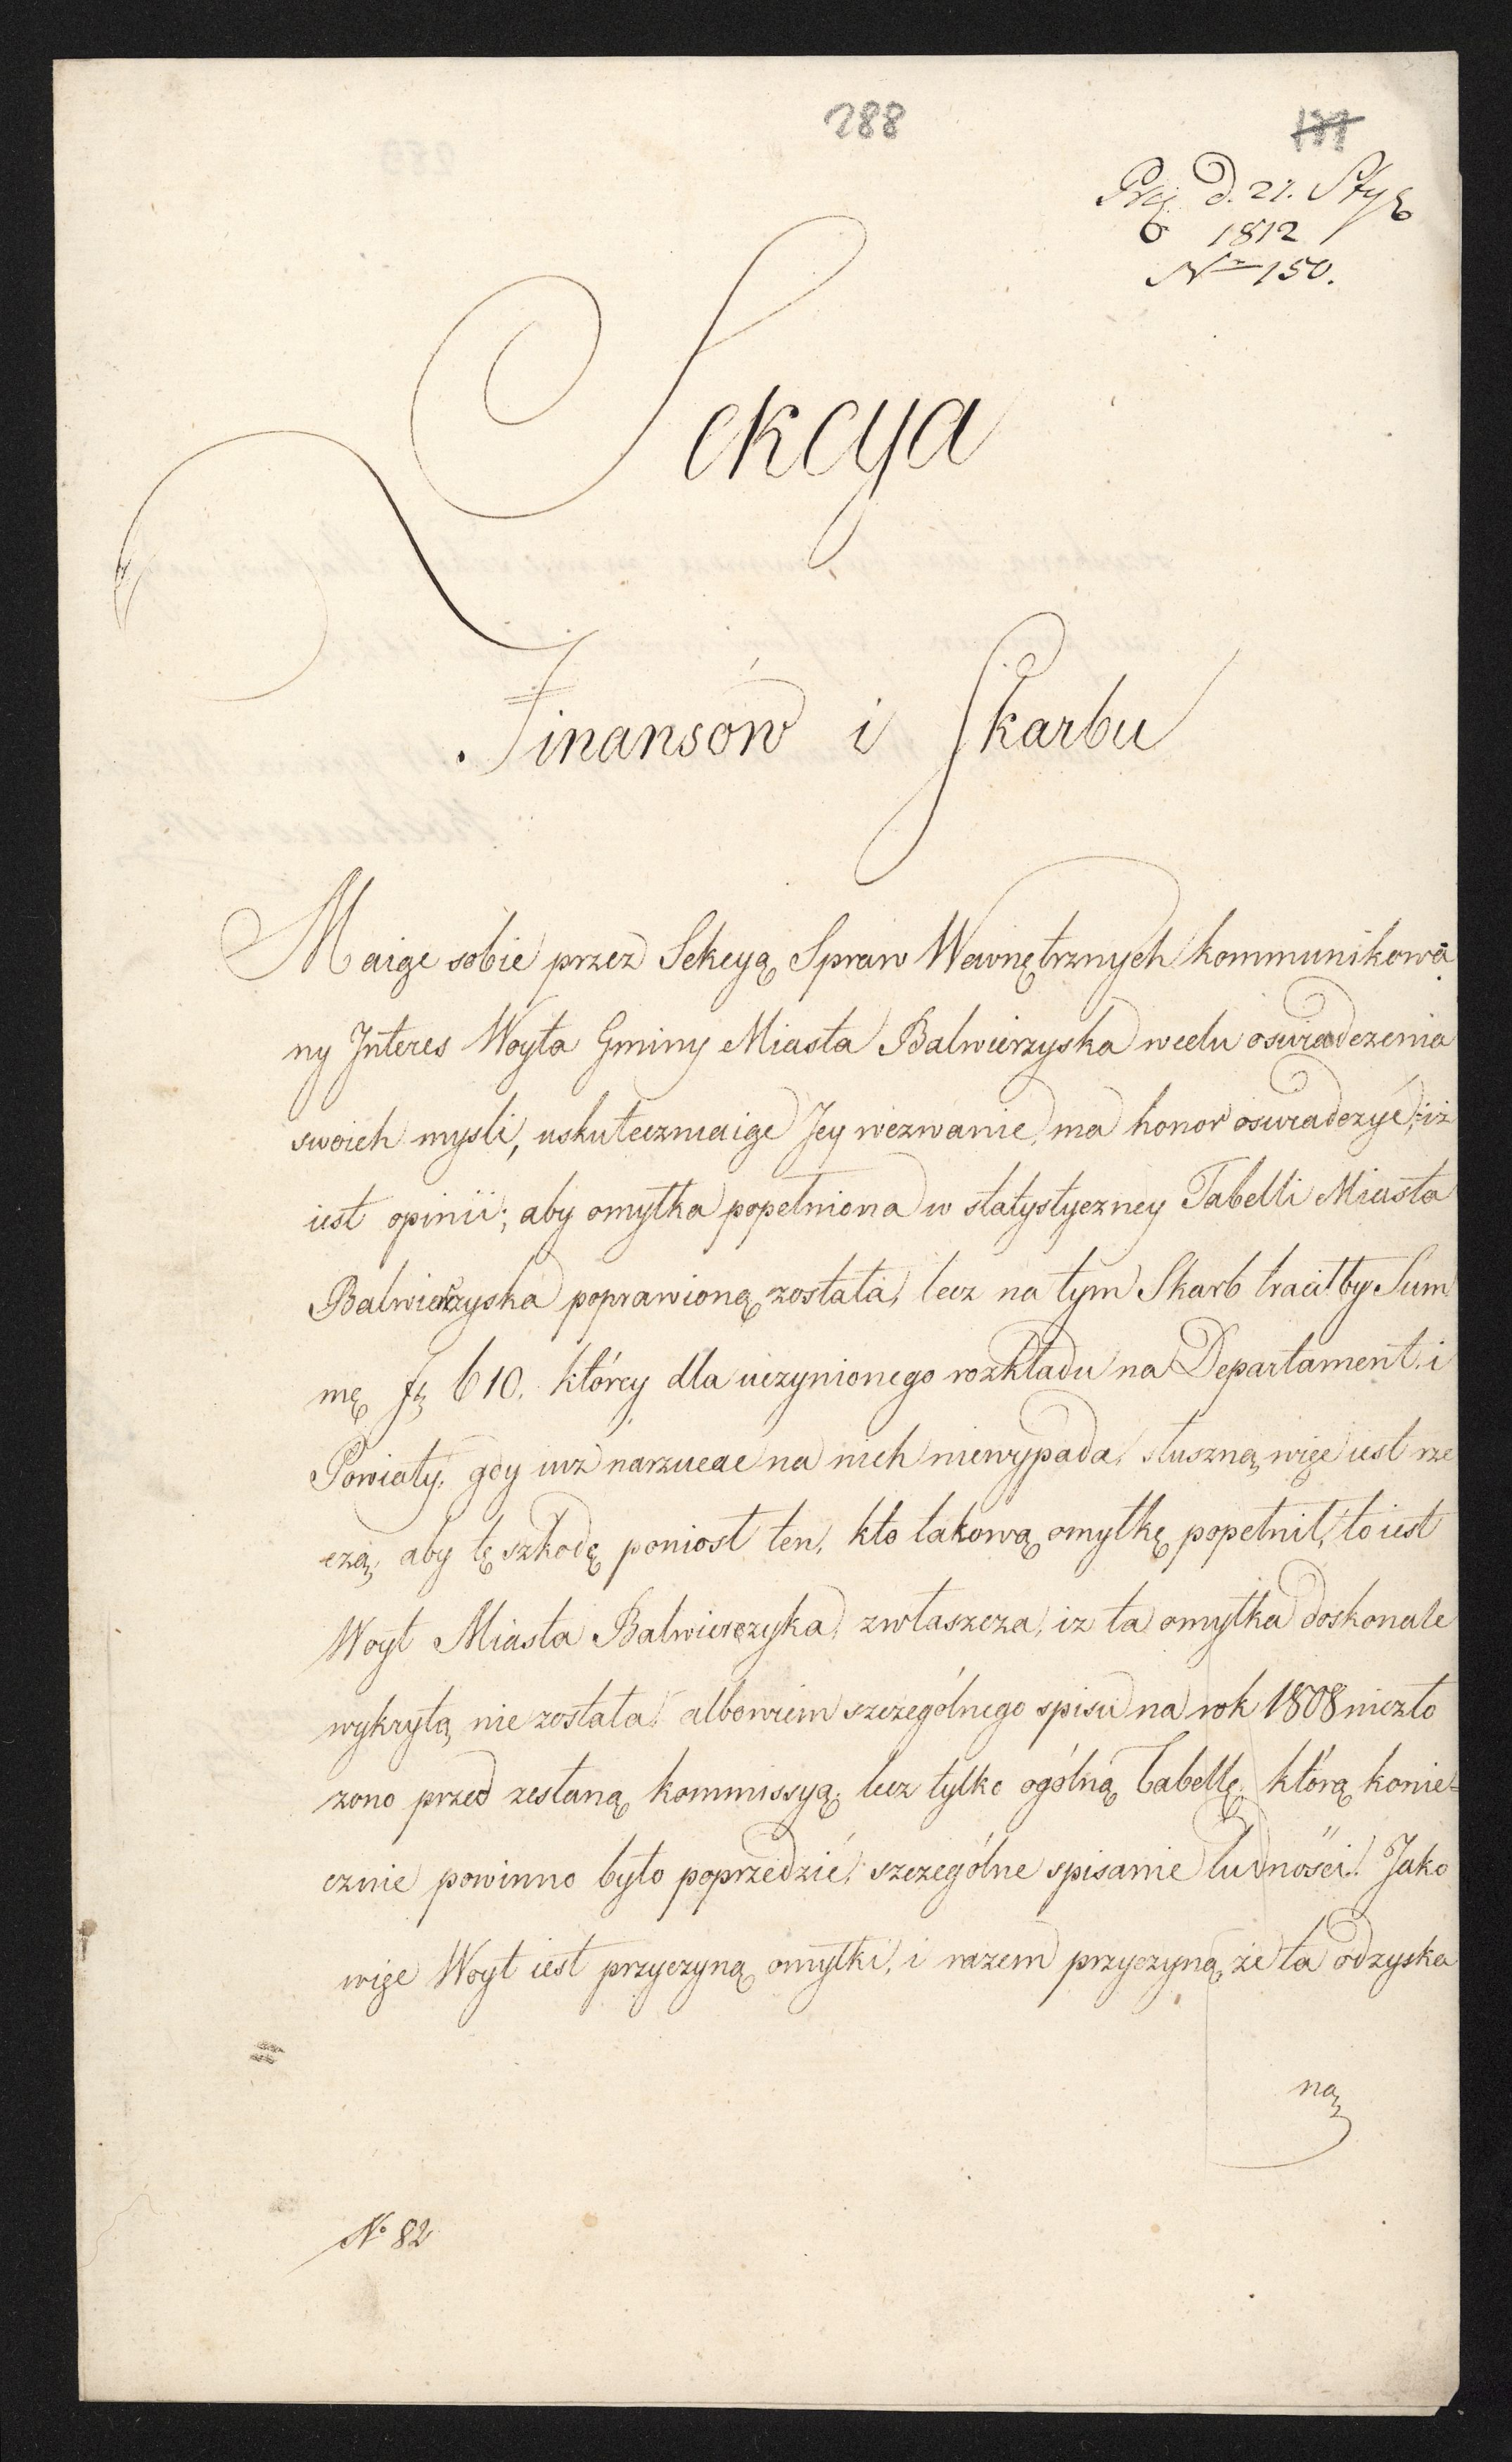 288
Prez. d. 21. Stycz
1812
Nr 150.
Sekcya
Finansów i Skarbu
Maiąc sobie przez Sekcyą Spraw Wewnętrznych kommunikowa
ny Interes Woyta Gminy Miasta Balwierzyska wcelu oswiadczenia
swoich mysli, uskuteczniaiąc Jey wezwanie, ma honor oswiadczyć, iż
iest opinii; aby omyłka popełniona w statystyczney Tabelli Miasta
Balwierzyska poprawioną została, lecz na tym Skarb traciłby Sum
mę fz 610. którey dla uczynionego rozkładu na Departament i
Powiaty, gdy iuz narzucac na nich niewypada, słuszną więc iest rze
czą, aby tę szkodę poniosł ten, kto takową omyłkę popełnił, to iest
Woyt Miasta Balwierzyka, zwłaszcza, iz ta omyłka doskonale
wykrytą nie została, albowiem szczególnego spisu na rok 1808 niezło
zono przed zesłaną kommissyą, lecz tylko ogólną Tabellę, którą konie=
cznie powinno było poprzedzić, szczególne spisanie ludności. Jako
więc Woyt iest przyczyną omyłki, i razem przyczyną, że ta odzyska
ną
No 82